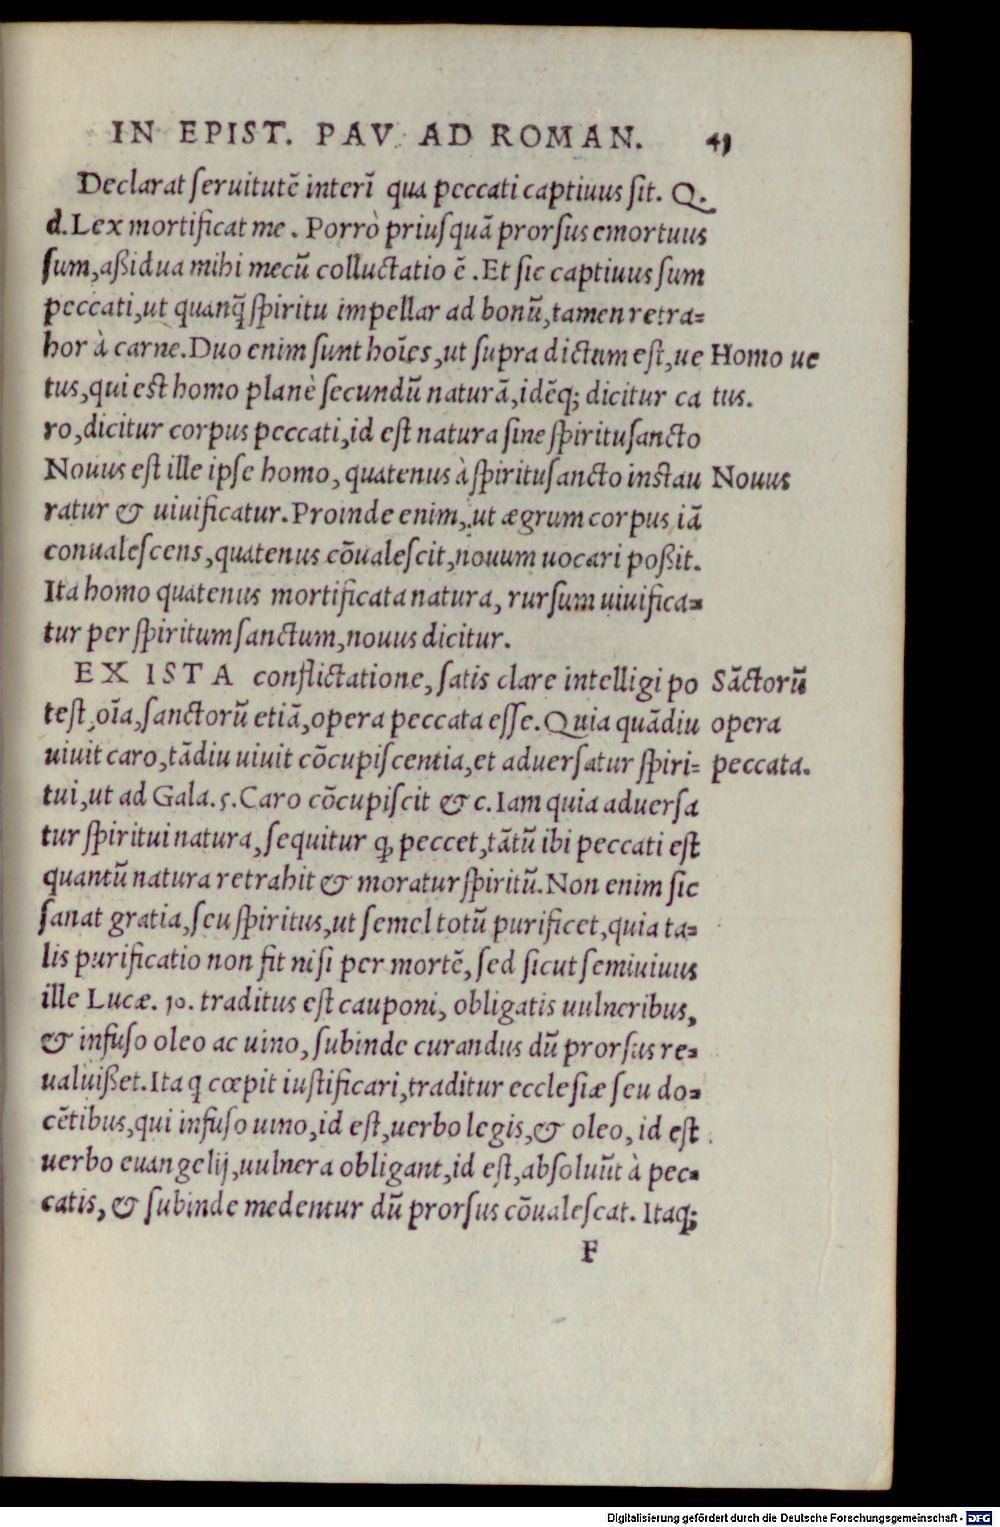 IN EPIST. PAV. AD ROMAN. 41
Declarat ſeruitutē interī qua peccati captiuus ſit. Q.
d. Lex mortificat me. Porrò priuſquā prorſus emortuus
ſum, aßidua mihi mecū colluctatio ē. Et ſic captiuus ſum
peccati, ut quanq̃ ſpiritu impellar ad bonū, tamen retra=
hor à carne. Duo enim ſunt hoīes, ut ſupra dictum eſt, ue Homo ue
tus, qui est homo planè ſecundū naturā, idēq; dicitur ca tus.
ro, dicitur corpus peccati, id eſt natura ſine ſpirituſancto
Nouus eſt ille ipſe homo, quatenus à ſpirituſancto inſtau Nouus
ratur & uiuificatur. Proinde enim, ut ægrum corpus iā
conualeſcens, quatenus cōualeſcit, nouum uocari poßit.
Ita homo quatenus mortificata natura, rurſum uiuifica=
tur per ſpiritum ſanctum, nouus dicitur.
EX ISTA conflictatione, ſatis clare intelligi po Sāctorū
teſt, oīa, ſanctorū etiā, opera peccata eſſe. Quia quādiu opera
uiuit caro, tādiu uiuit cōcupiſcentia, et aduerſatur ſpiri= peccata.
tui, ut ad Gala. 5. Caro cōcupiſcit & c. Iam quia aduerſa
tur ſpiritui natura, ſequitur ꝙ peccet, tātū ibi peccati eſt
quantū natura retrahit & moratur ſpiritū. Non enim ſic
ſanat gratia, ſeu ſpiritus, ut ſemel totū purificet, quia ta=
lis purificatio non fit niſi per mortē, ſed ſicut ſemiuiuus
ille Lucæ. 10. traditus eſt cauponi, obligatis uulneribus,
& infuſo oleo ac uino, ſubinde curandus dū prorſus re=
ualuißet. Ita q cœpit iuſtificari, traditur eccleſiæ ſeu do=
cētibus, qui infuſo uino, id eſt, uerbo legis, & oleo, id eſt
uerbo euangelij, uulnera obligant, id eſt, abſoluūt à pec=
catis, & ſubinde medentur dū prorſus cōualeſcat. Itaq;
F
Digitalisierung gefördert durch die Deutsche Forschungsgemeinschaft - DFG